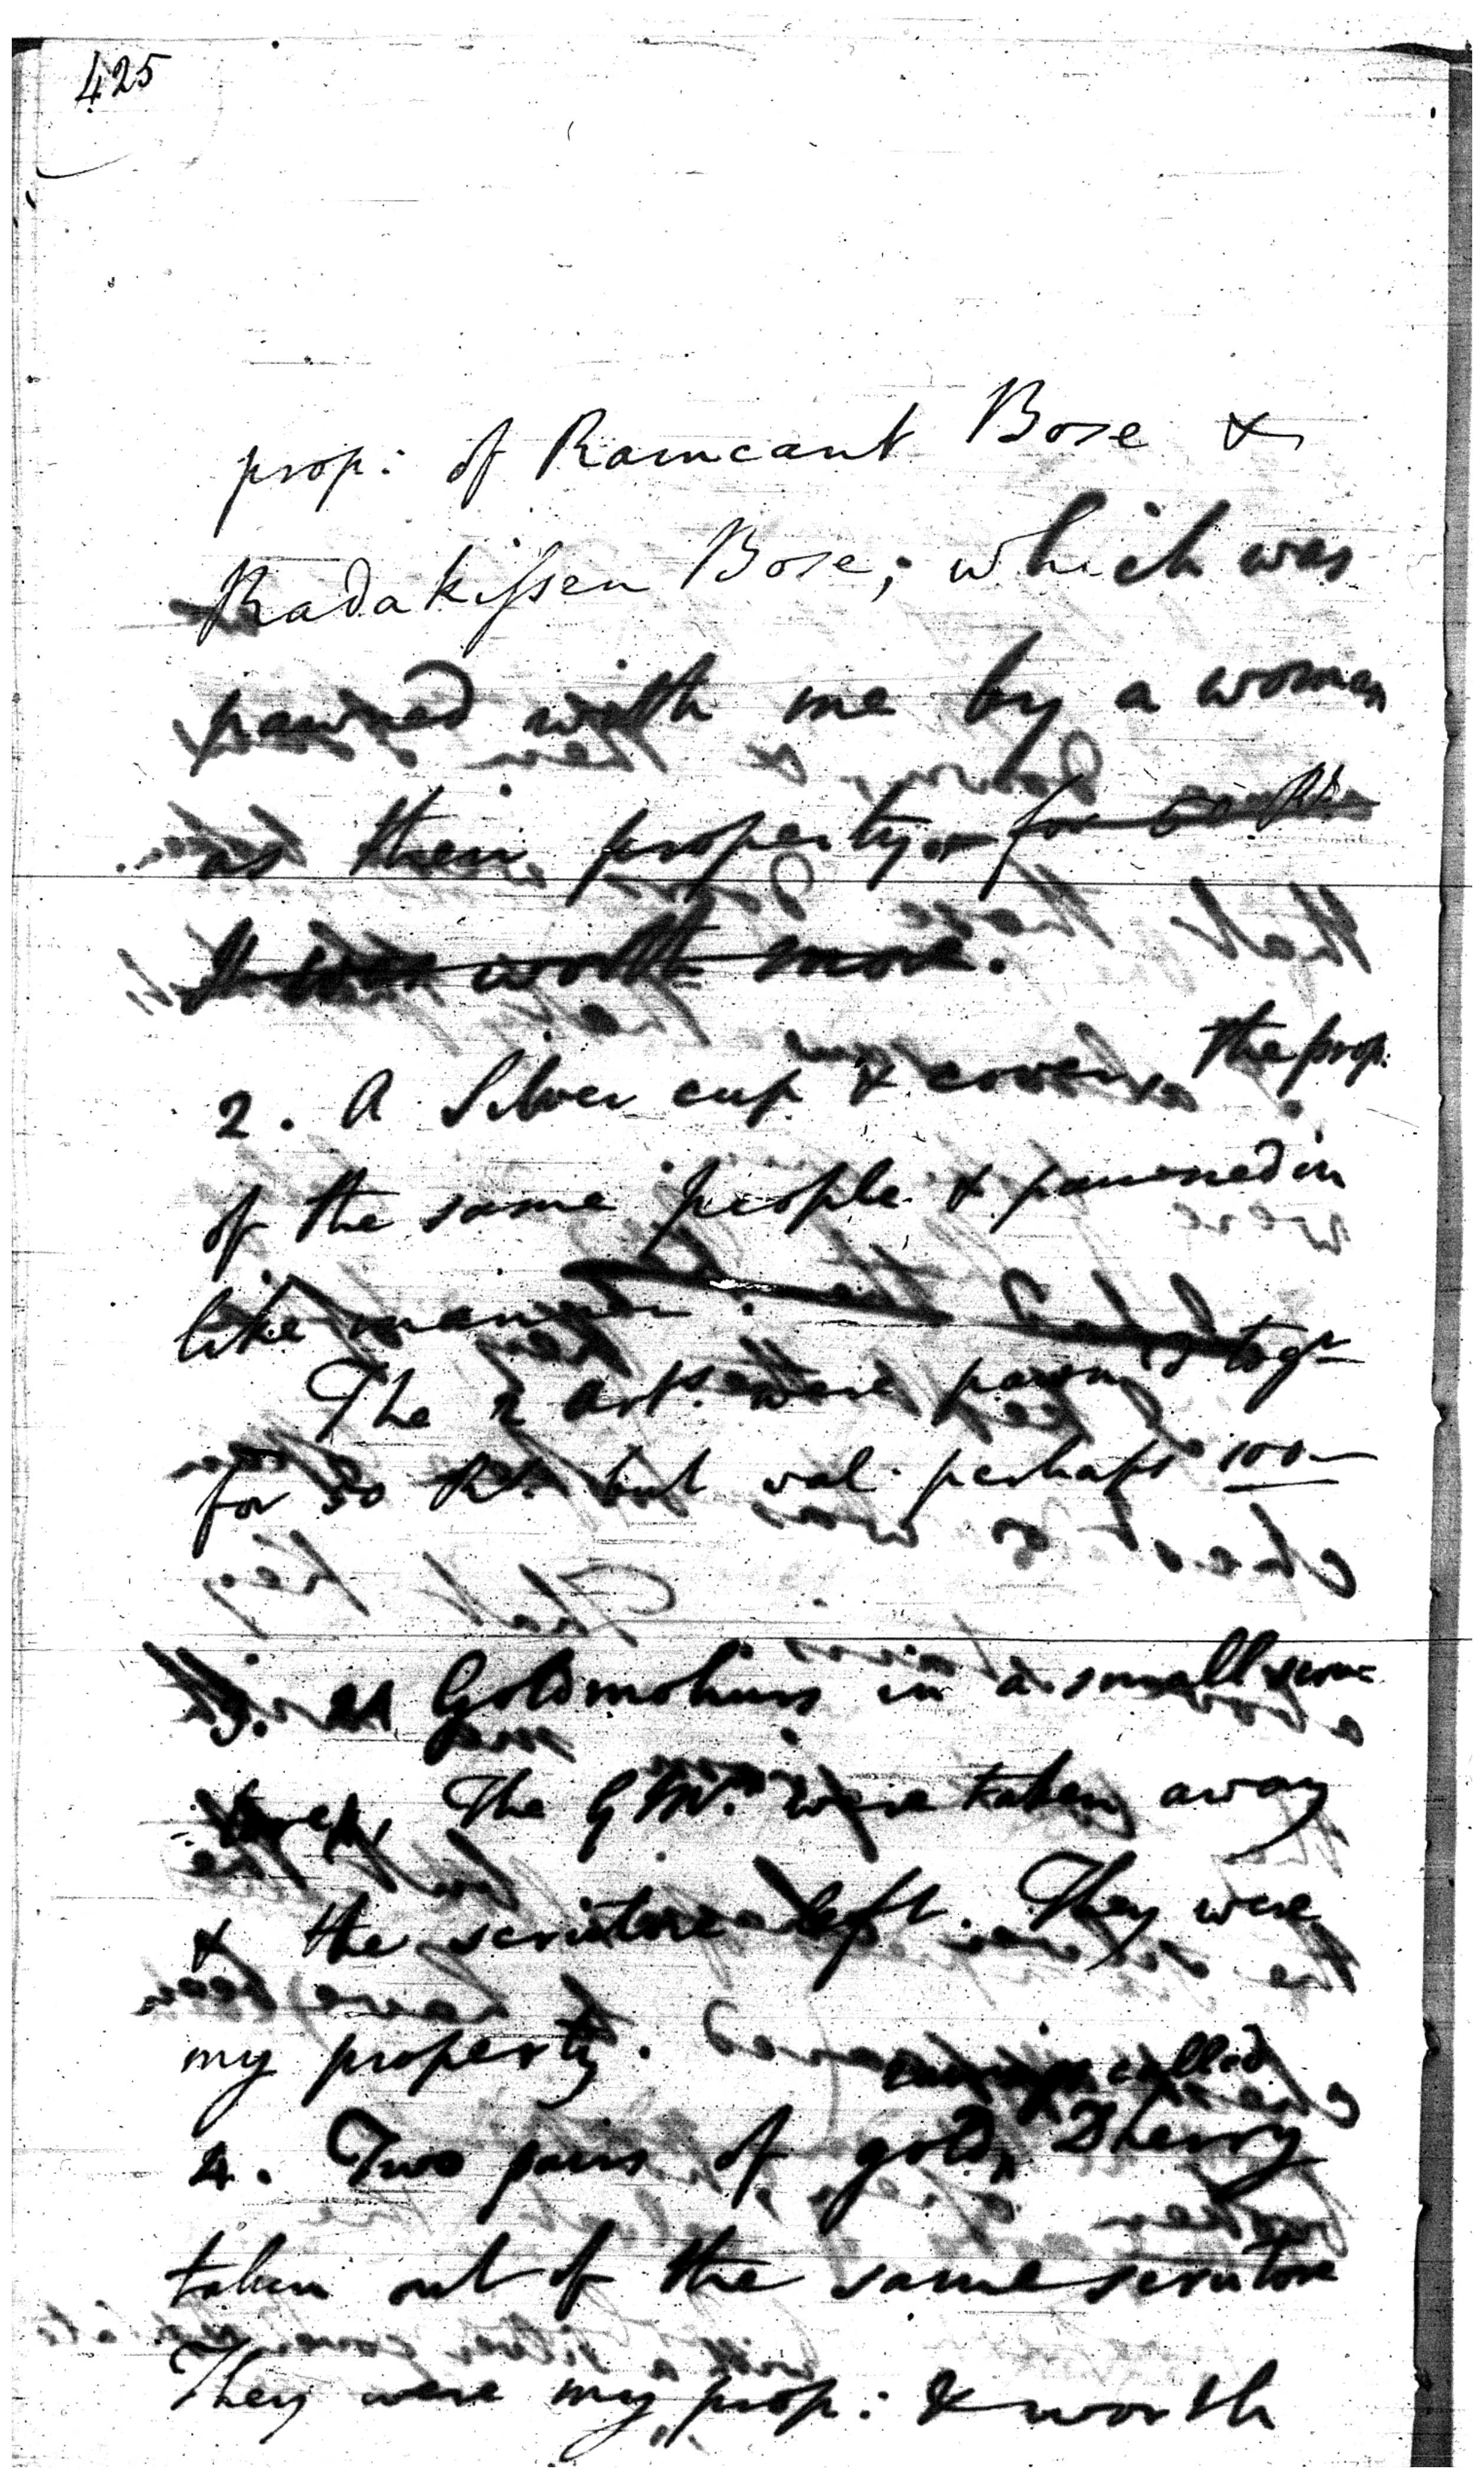 425
prop: of Ramcant Bose &
Radakissen Bose; which was
pawned with me by a woman
as their property for 50 Rs
It was worth more.
2. A Silver cup & cover the prop.
of the same people & pawned in
like manner.
The 2 arts. were pawn'd togr
for 50 Rs. but val. perhaps 100
3. 21 Goldmohurs in a small scru=
tore. The G Ms. were taken away
& the scrutore left. They were
my property.
called
4. Two pairs of gold Dherry
taken out of the same scrutore
They were my prop: & worth